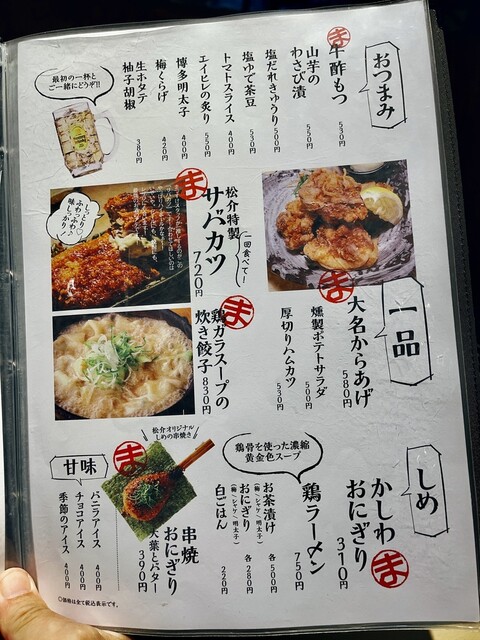 おつまみ
ま
牛酢もつ
530円
山芋の
わさび漬
550円
塩だれきゅうり
500円
塩ゆで茶豆
530円
トマトスライス
400円
エイヒレの炙り
550円
博多明太子
400円
梅くらげ
420円
生ホタテ
柚子胡椒
380円
最初の一杯と
ご一緒にどうぞ!!
一品
ま
大名からあげ
580円
燻製ポテトサラダ
500円
厚切りハムカツ
530円
ま
松介特製
サバカツ
720円
一回食べて!
しっとり♡
ふわっふわ♪
味しっかり!
ま
鶏ガラスープの
炊き餃子
830円
しめ
かしわ
おにぎり
ま
310円
鶏骨を使った濃縮
黄金色スープ
鶏ラーメン
750円
お茶漬け
(梅/シャケ/明太子)
各500円
おにぎり
(梅/シャケ/明太子)
各280円
白ごはん
220円
松介オリジナル
しめの串焼き
ま
串焼
おにぎり
大葉とバター
390円
甘味
バニラアイス
400円
チョコアイス
400円
季節のアイス
400円
◎価格は全て税込表示です。